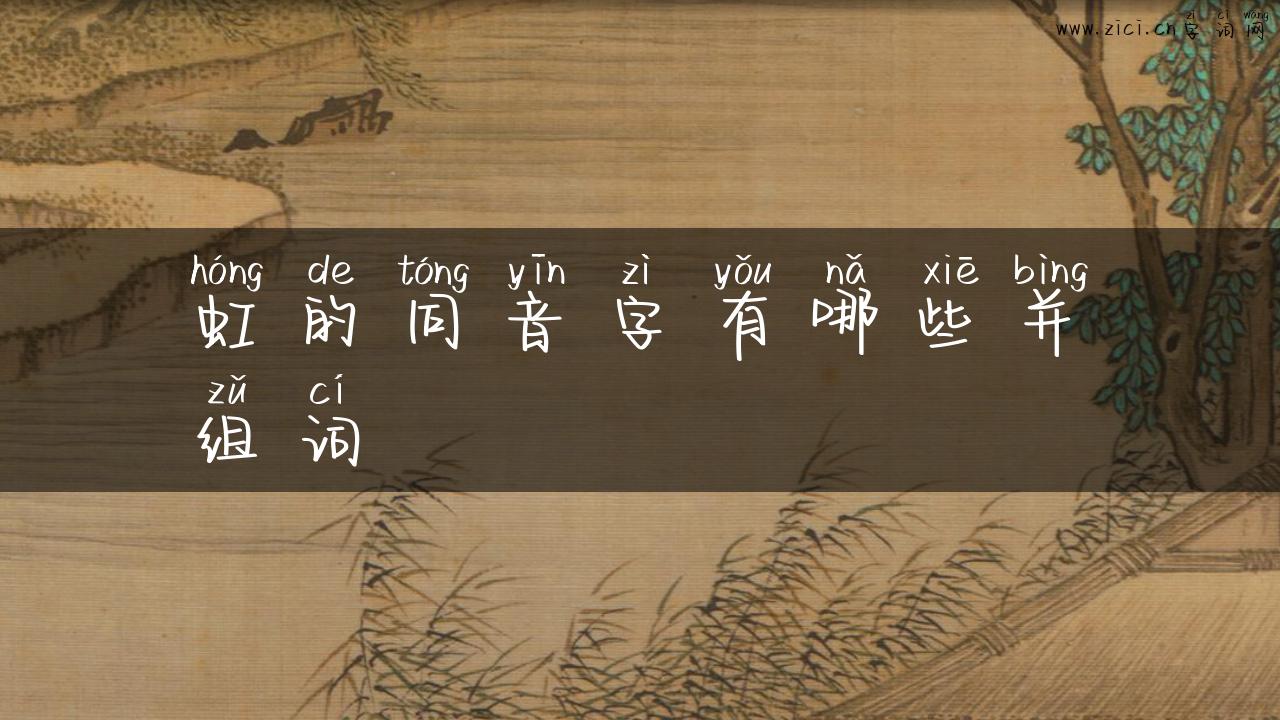 zì cí wǎng
www.zici.cn字词网
hóng de tóng yīn zì yǒu nǎ xiē bìng
虹的同音字有哪些并
zǔ cí
组词